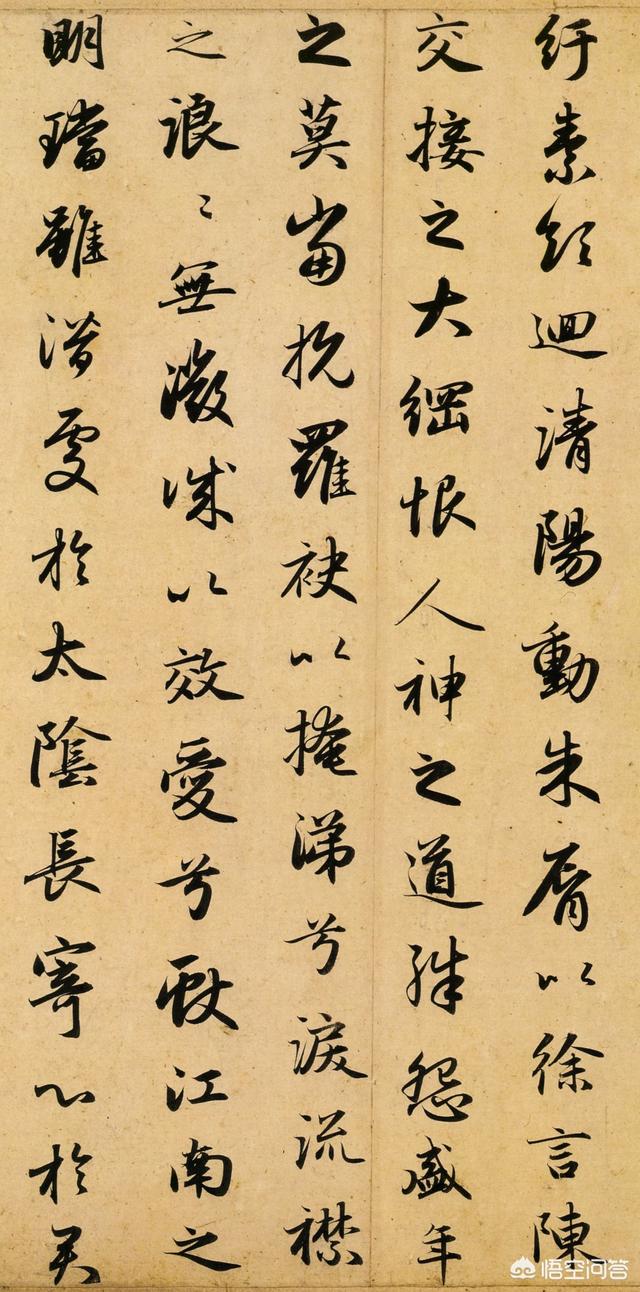 紆素領迴清陽動朱脣以徐言陳
交接之大綱恨人神之道殊怨盛年
之莫當抗羅袂以掩涕兮淚流襟
之浪〻無微誠以效愛兮獻江南之
明璫雖潛處於太陰長寄心於君
悟空问答